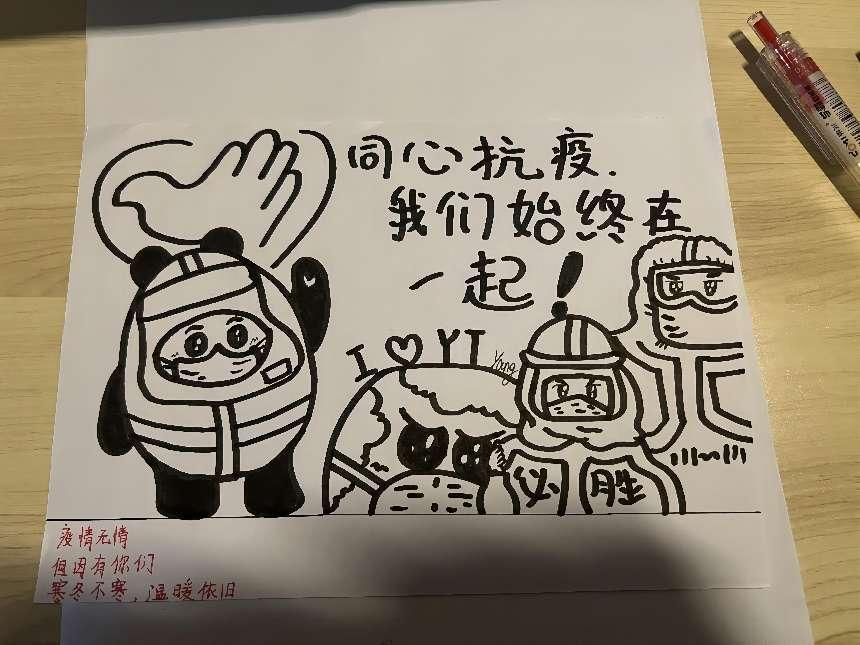 同心抗疫.
我们始终在
一起!
I ♡ YI
Yang
必胜
疫情无情
但因有你们
寒冬不寒,温暖依旧